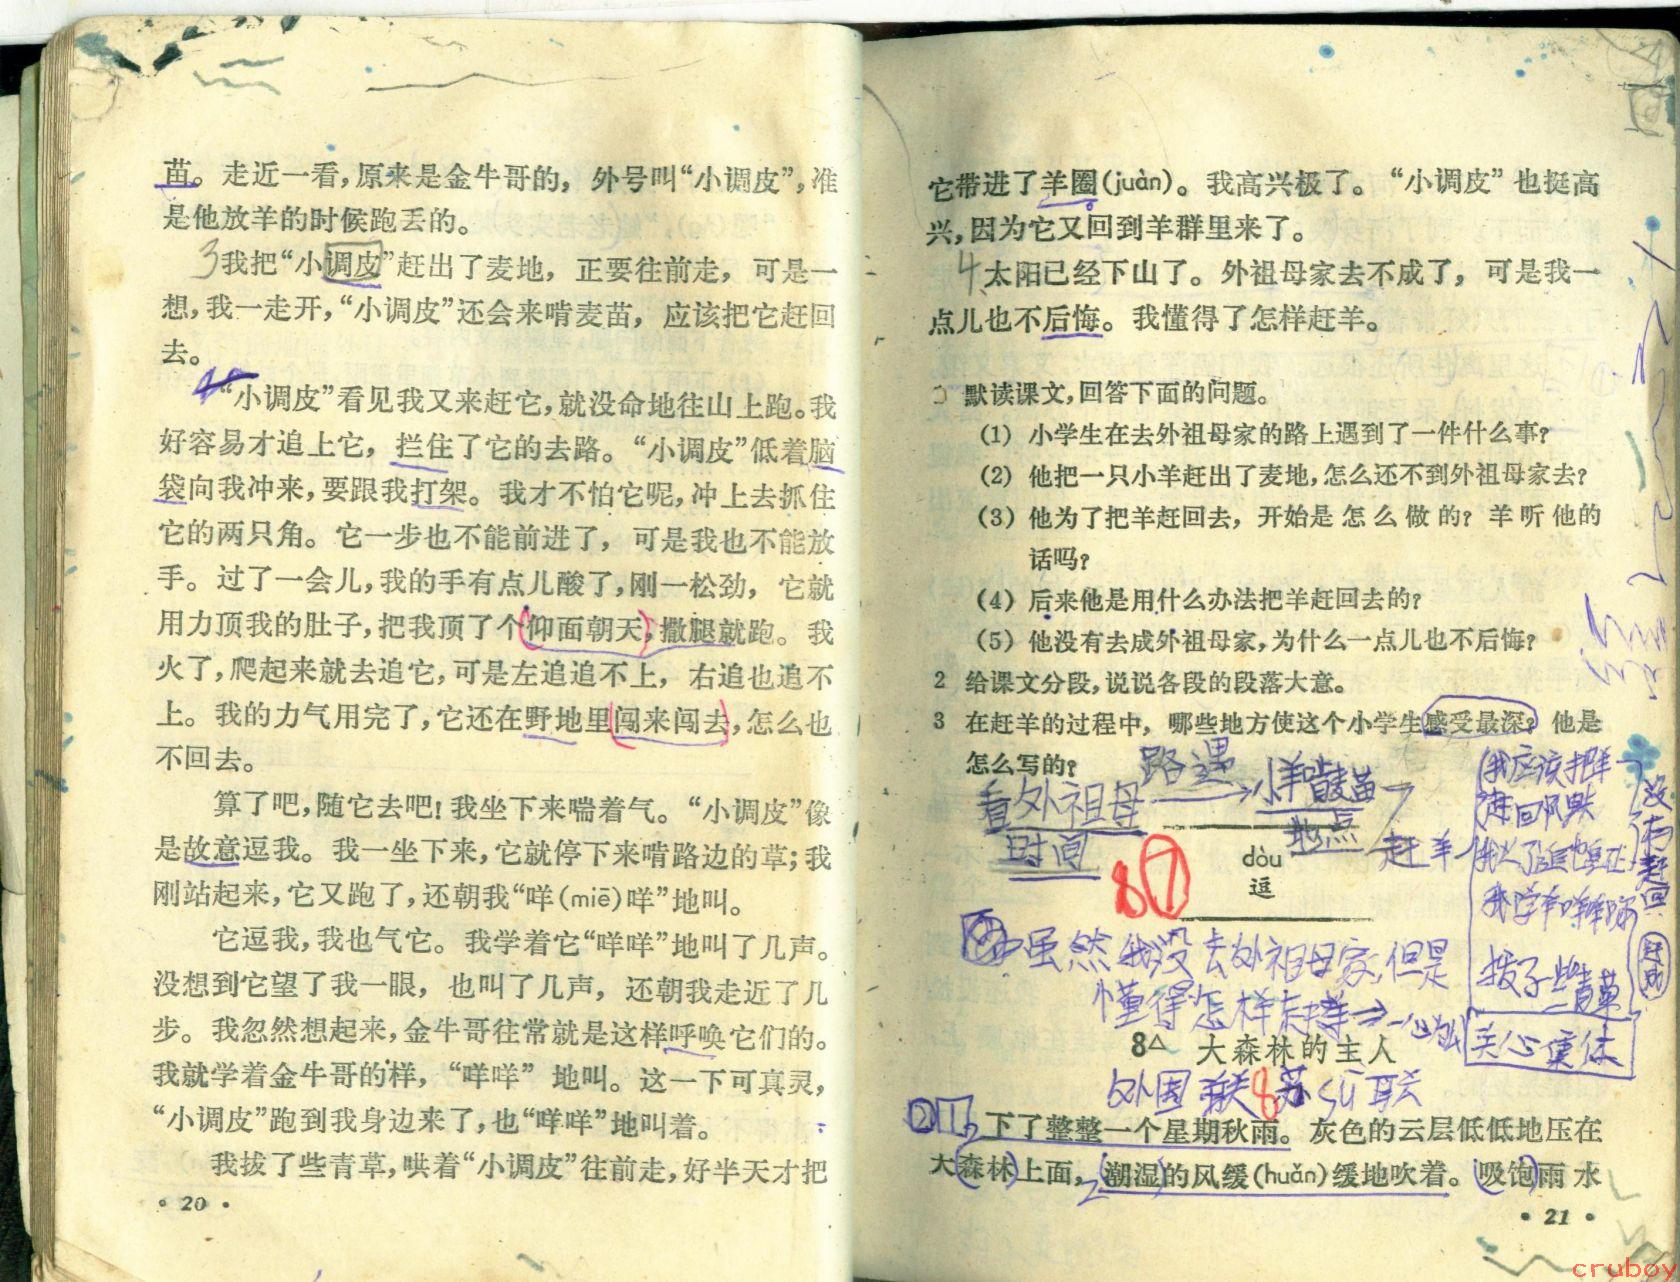 苗。走近一看，原来是金牛哥的，外号叫“小调皮”，准
是他放羊的时候跑丢的。
3我把“小调皮”赶出了麦地，正要往前走，可是一
想，我一走开，“小调皮”还会来啃麦苗，应该把它赶回
去。
“小调皮”看见我又来赶它，就没命地往山上跑。我
好容易才追上它，拦住了它的去路。“小调皮”低着脑
袋向我冲来，要跟我打架。我才不怕它呢，冲上去抓住
它的两只角。它一步也不能前进了，可是我也不能放
手。过了一会儿，我的手有点儿酸了，刚一松劲，它就
用力顶我的肚子，把我顶了个仰面朝天，撒腿就跑。我
火了，爬起来就去追它，可是左追追不上，右追也追不
上。我的力气用完了，它还在野地里闯来闯去，怎么也
不回去。
算了吧，随它去吧！我坐下来喘着气。“小调皮”像
是故意逗我。我一坐下来，它就停下来啃路边的草；我
刚站起来，它又跑了，还朝我“咩(miē)咩”地叫。
它逗我，我也气它。我学着它“咩咩”地叫了几声。
没想到它望了我一眼，也叫了几声，还朝我走近了几
步。我忽然想起来，金牛哥往常就是这样呼唤它们的。
我就学着金牛哥的样，“咩咩”地叫。这一下可真灵，
“小调皮”跑到我身边来了，也“咩咩”地叫着。
我拔了些青草，哄着“小调皮”往前走，好半天才把
• 20 •
它带进了羊圈(juàn)。我高兴极了。“小调皮”也挺高
兴，因为它又回到羊群里来了。
4太阳已经下山了。外祖母家去不成了，可是我一
点儿也不后悔。我懂得了怎样赶羊。
默读课文，回答下面的问题。
(1) 小学生在去外祖母家的路上遇到了一件什么事？
(2) 他把一只小羊赶出了麦地，怎么还不到外祖母家去？
(3) 他为了把羊赶回去，开始是怎么做的？羊听他的
话吗？
(4) 后来他是用什么办法把羊赶回去的？
(5) 他没有去成外祖母家，为什么一点儿也不后悔？
2 给课文分段，说说各段的段落大意。
3 在赶羊的过程中，哪些地方使这个小学生感受最深？他是
怎么写的？
路遇
看外祖母
小羊啃麦苗
时间
地点
赶羊
我应该把羊
赶回队
没有赶回
拔了些青草
赶成
关心集体
87
dòu
逗
虽然我没去外祖母家，但是
懂得怎样赶羊
8△ 大森林的主人
外国 8 苏sū联
②1、下了整整一个星期秋雨。灰色的云层低低地压在
大森林上面，2潮湿的风缓(huǎn)缓地吹着。吸饱雨水
• 21 •
cruboy